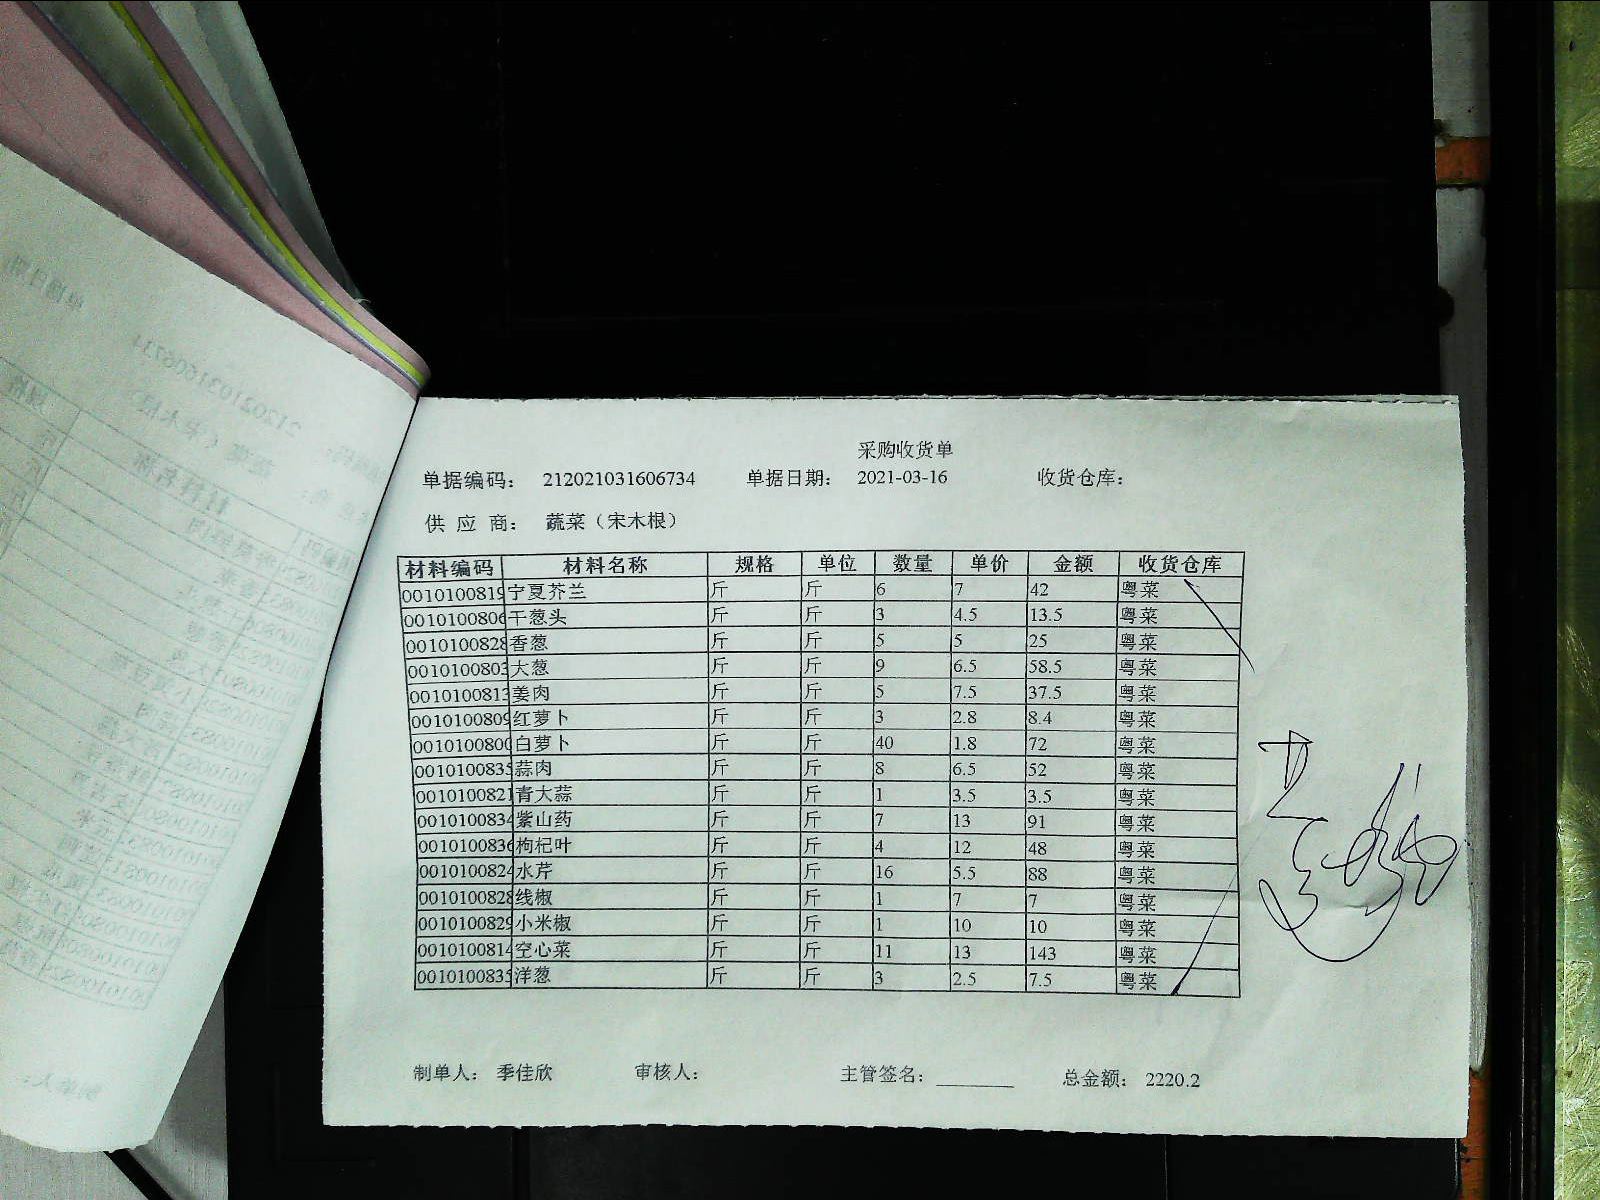 采购收货单
单据编码： 212021031606734 单据日期： 2021-03-16 收货仓库：
供 应 商： 蔬菜（宋木根）
材料编码 材料名称 规格 单位 数量 单价 金额 收货仓库
0010100819 宁夏芥兰 斤 斤 6 7 42 粤菜
0010100806 干葱头 斤 斤 3 4.5 13.5 粤菜
0010100828 香葱 斤 斤 5 5 25 粤菜
0010100803 大葱 斤 斤 9 6.5 58.5 粤菜
0010100813 姜肉 斤 斤 5 7.5 37.5 粤菜
0010100809 红萝卜 斤 斤 3 2.8 8.4 粤菜
0010100800 白萝卜 斤 斤 40 1.8 72 粤菜
0010100835 蒜肉 斤 斤 8 6.5 52 粤菜
0010100821 青大蒜 斤 斤 1 3.5 3.5 粤菜
0010100834 紫山药 斤 斤 7 13 91 粤菜
0010100836 枸杞叶 斤 斤 4 12 48 粤菜
0010100824 水芹 斤 斤 16 5.5 88 粤菜
0010100828 线椒 斤 斤 1 7 7 粤菜
0010100829 小米椒 斤 斤 1 10 10 粤菜
0010100814 空心菜 斤 斤 11 13 143 粤菜
0010100835 洋葱 斤 斤 3 2.5 7.5 粤菜
制单人： 季佳欣 审核人： 主管签名： 总金额： 2220.2